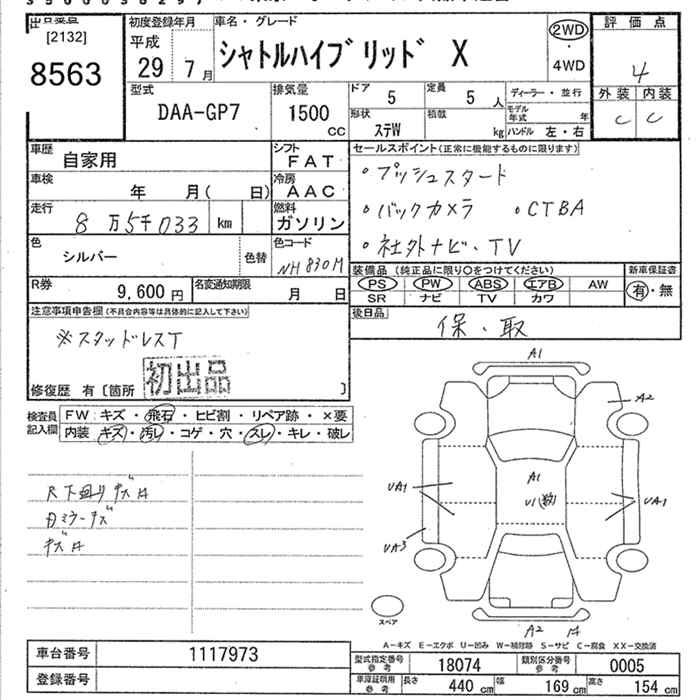 出品番号
[2132]
8563
初度登録年月
平成
29 7月
車名・グレード
シャトルハイブリッド X
2WD
・
4WD
評価点
4
外装 内装
C C
型式
DAA-GP7
排気量
1500
CC
ドア
5
定員
5 人
形状
ステW
積載
kg
ディーラー・並行
モデル年式 年
ハンドル 左・右
車歴
自家用
シフト
FAT
車検
年 月( 日)
冷房
AAC
走行
8万5千033 km
燃料
ガソリン
色
シルバー
色替
色コード
NH830M
R券
9,600 円
名変通知期限
月 日
セールスポイント(正常に機能するものに限ります)
・プッシュスタード
・バックカメラ ・CTBA
・社外ナビ・TV
装備品 (純正品に限り○をつけてください)
PS PW ABS エアB AW
SR ナビ TV カワ
新車保証書
有・無
後日品
保・取
注意事項申告欄(不具合内容等は具体的に記入して下さい)
※スタッドレスT
初出品
修復歴 有 [箇所 ]
検査員記入欄
FW: キズ・飛石・ヒビ割・リペア跡・×要
内装: キズ・汚レ・コゲ・穴・スレ・キレ・破レ
A1
A2
A1
U1
UA1
UA1
UA3
スペア
A2
A-キズ E-エクボ U-凹み W-補修跡 S-サビ C-腐食 XX-交換済
車台番号
1117973
登録番号
型式指定番号
参考
18074
類別区分番号
参考
0005
車庫証明用
参考
長さ
440 cm
幅
169 cm
高さ
154 cm